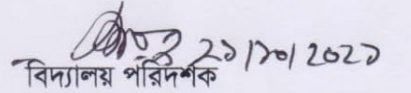 ২১/১০/২০২১
বিদ্যালয় পরিদর্শক